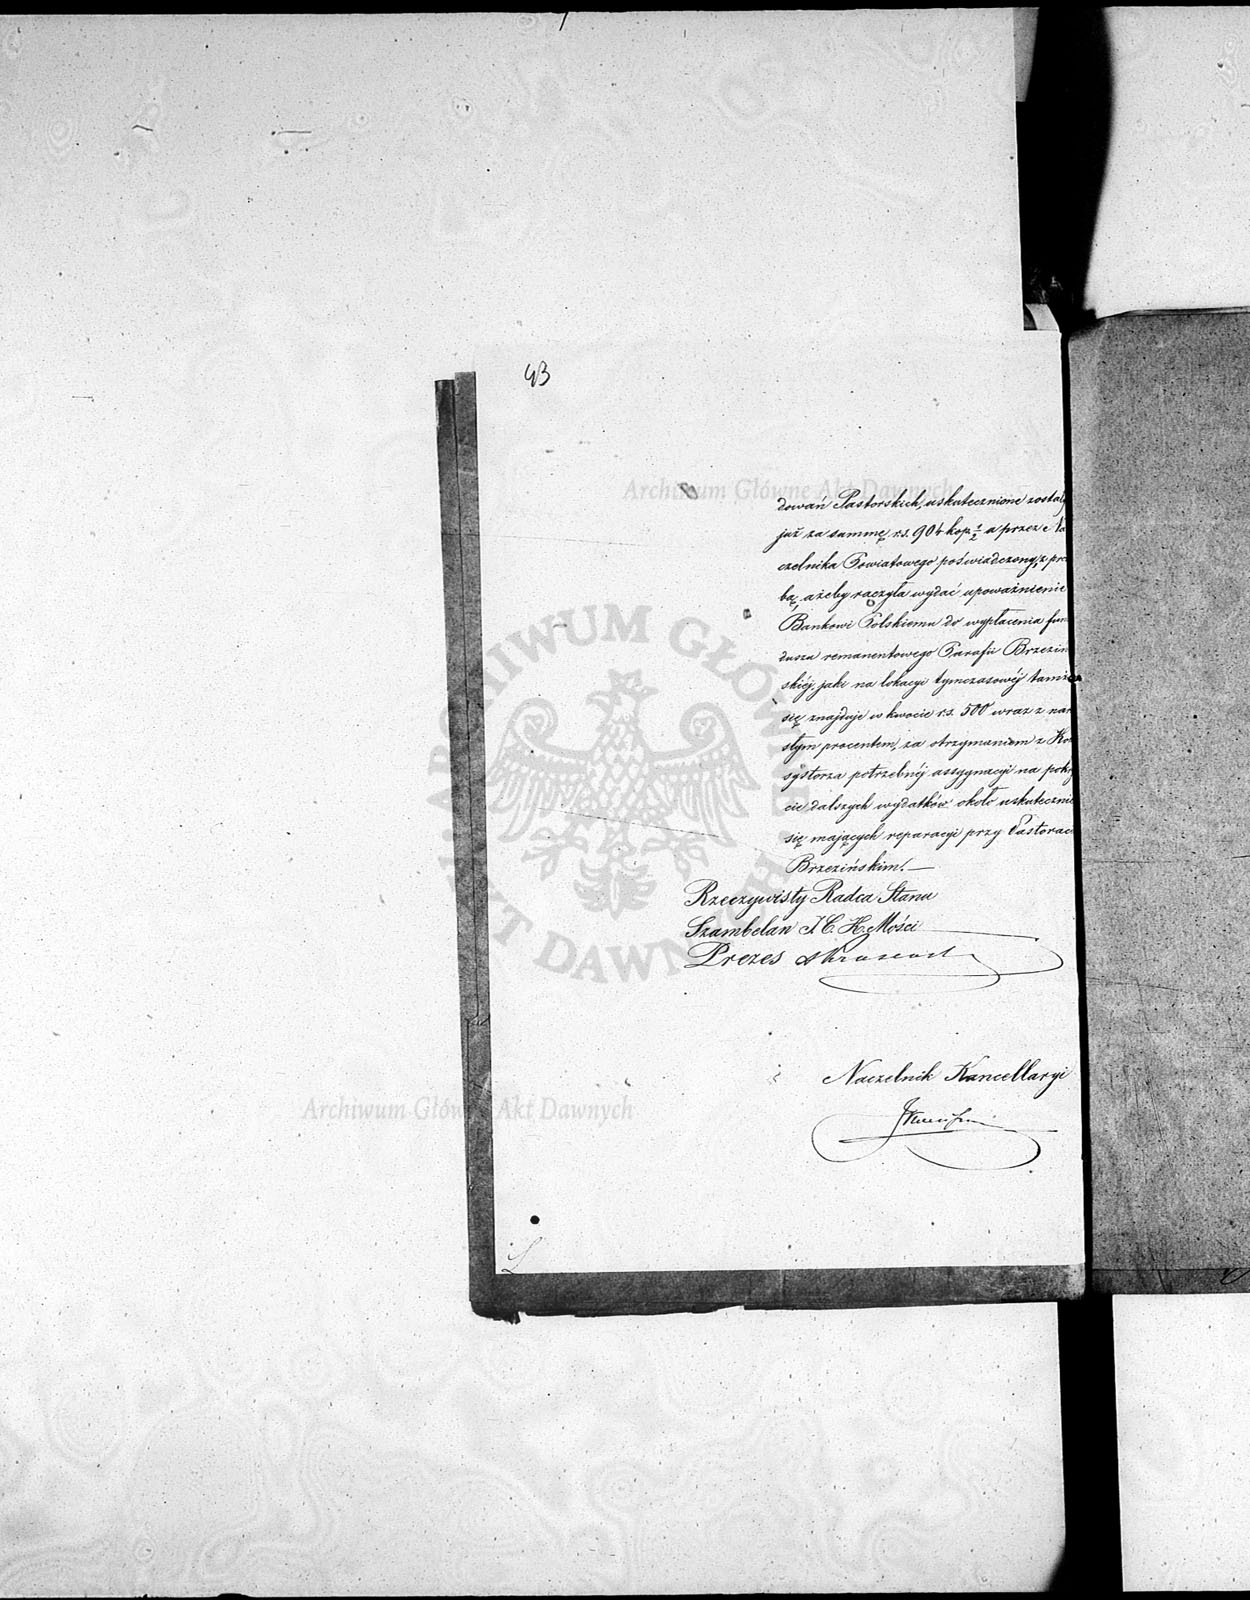 43
dowań Pastorskich, uskutecznione został
już za summę rs. 904 kop. ½ a przez Na
czelnika Powiatowego poświadczony, z pro
bą, ażeby raczyła wydać upoważnienie
Bankowi Polskiemu do wypłacenia fun
duszu remanentowego Parafii Brzeziń
skiéj, jaki na lokacyi tymczasowéj tamże
się znajduje w kwocie rs. 500 wraz z nar
słym procentem, za otrzymaniem z Kon
systorza potrzebnéj assygnacyi na pokry
cie dalszych wydatków około uskutecznić
się mających reparacyi przy Pastorac
Brzezińskim.—
Rzeczywisty Radca Stanu
Szambelan J. C. K. Mości
Prezes
Naczelnik Kancellaryi
Archiwum Główne Akt Dawnych
ARCHIWUM GŁÓWNE AKT DAWNYCH
Archiwum Główne Akt Dawnych